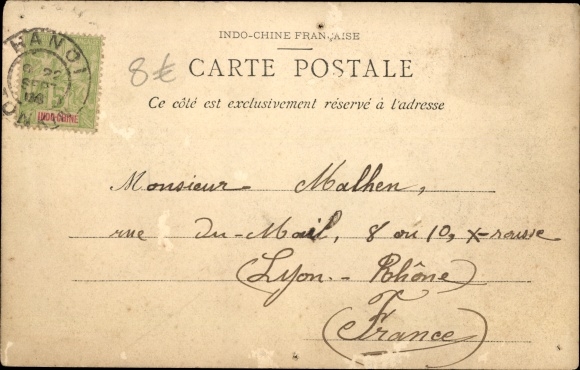 INDO-CHINE FRANÇAISE
CARTE POSTALE
Ce côté est exclusivement réservé à l'adresse
HANOI
SEPT
5
INDO-CHINE
8€
Monsieur Malhen,
rue du-Mail, 8 ou 10, x-rousse
(Lyon.- Rhône)
(France)